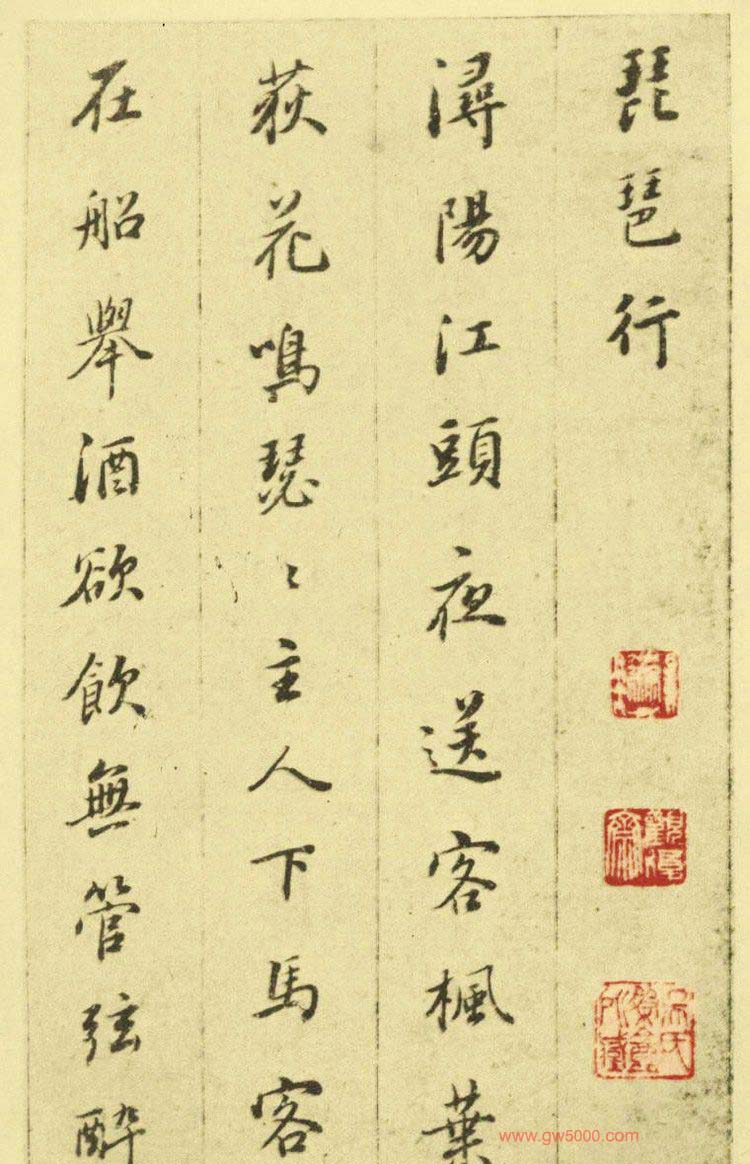 琵琶行
潯陽江頭夜送客楓葉
荻花鳴瑟〻主人下馬客
在船舉酒欲飲無管弦醉
www.gw5000.com